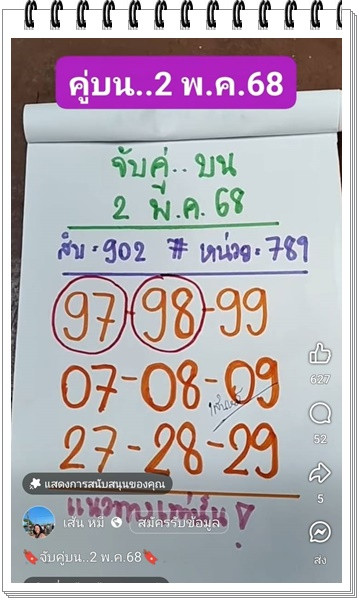 คู่บน..2 พ.ค.68
จับคู่.. บน
2 พ.ค. 68
สิบ = 902 # หน่วย = 789
97-98-99
07-08-09
27-28-29
แสดงการสนับสนุนของคุณ
แนวทางเท่านั้น
เส้น หมี่
สมัครรับข้อมูล
จับคู่บน..2 พ.ค.68
627
52
5
ส่ง